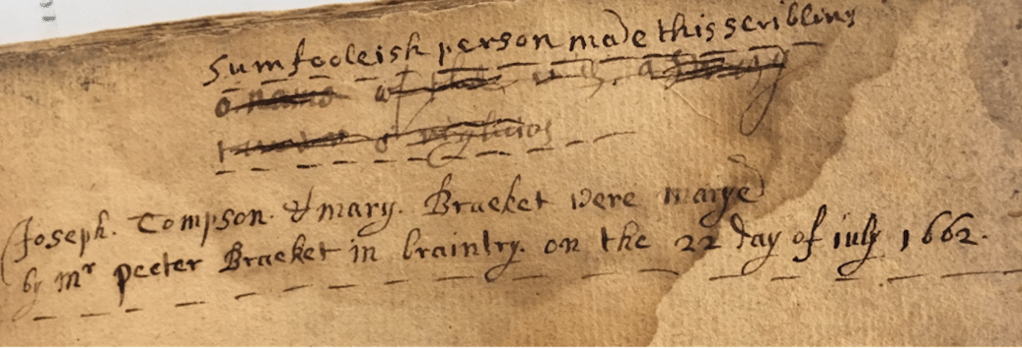 Sum fooleish person made this scribling
o of
o
Joseph. Tompson. & mary. Bracket were marye^d
by m^r peeter Bracket in braintry. on the 22 day of iuly 1662.